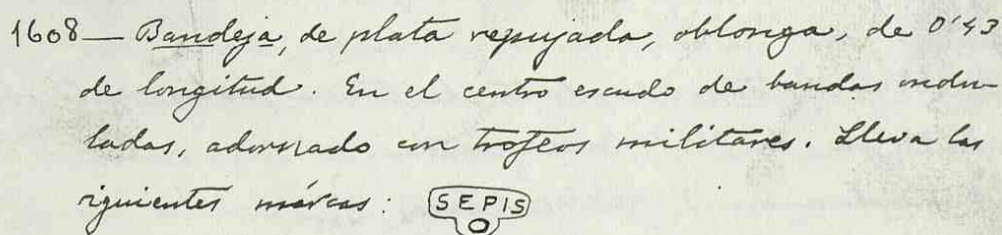 1608 — Bandeja, de plata repujada, oblonga, de 0'43
de longitud. En el centro escudo de bandas ondu-
ladas, adornado con trofeos militares. Lleva las
siguientes márcas: SEPIS
O